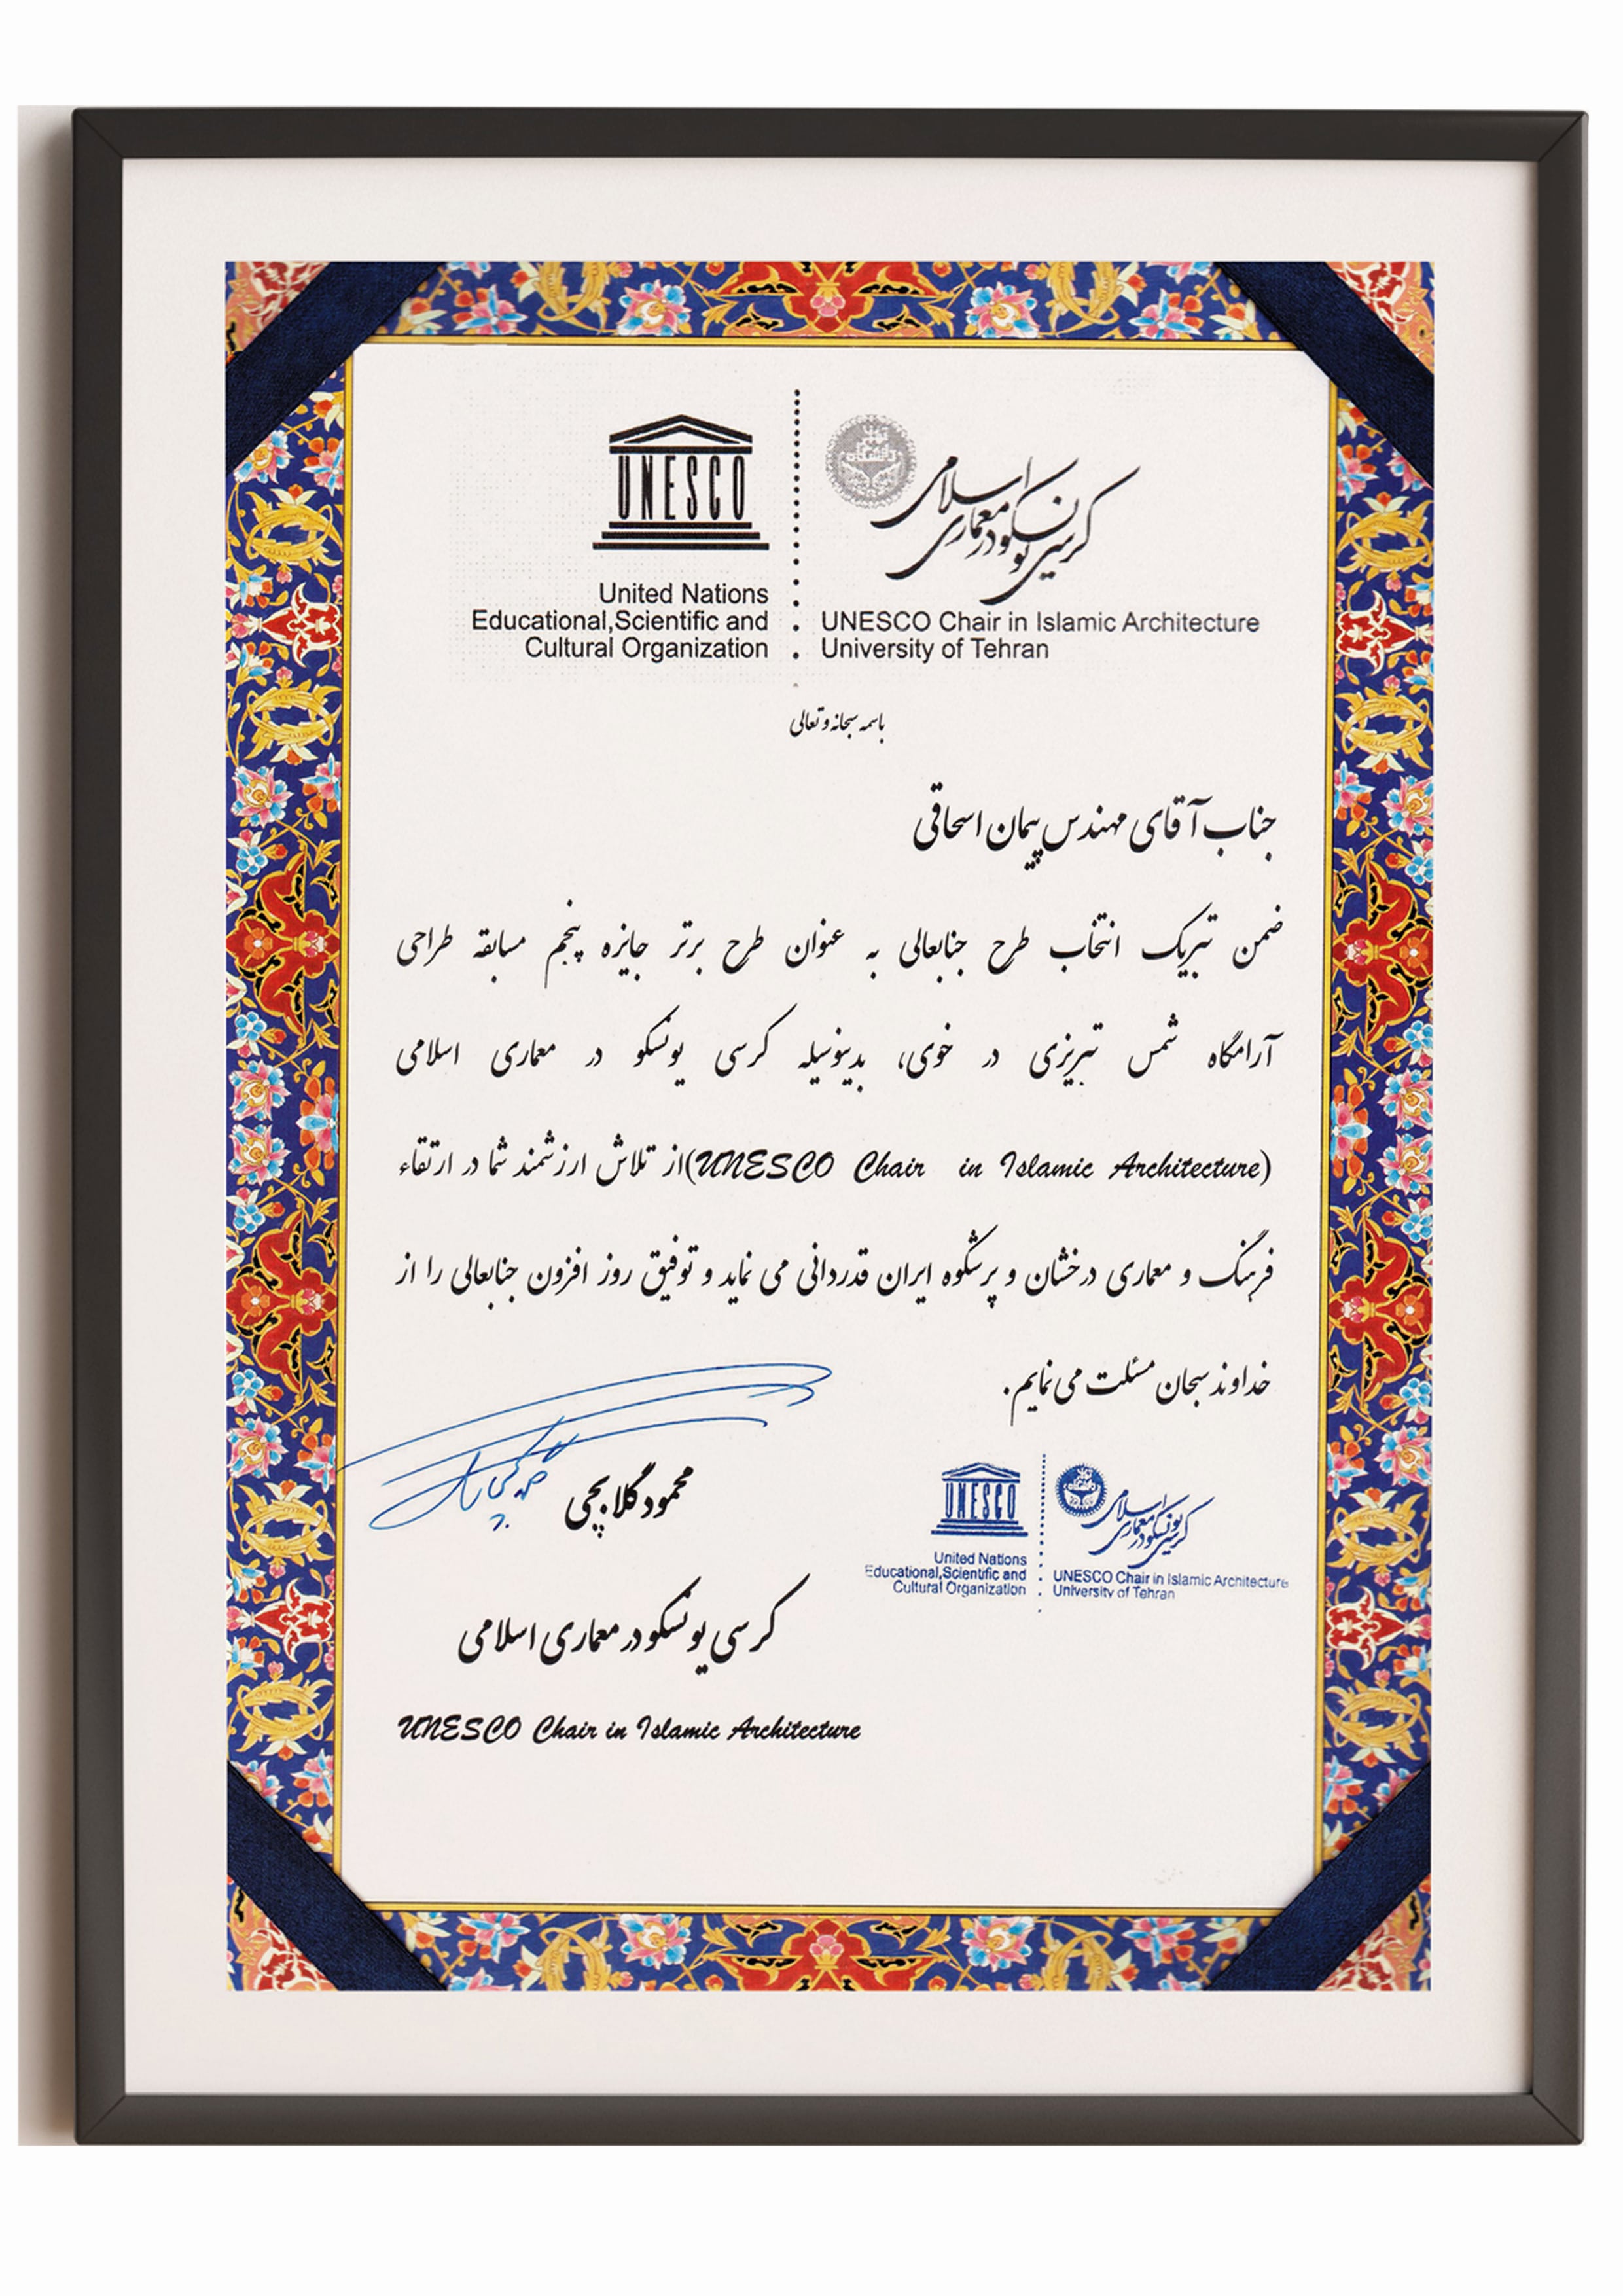 UNESCO
United Nations
Educational,Scientific and
Cultural Organization
کرسی یونسکو در معماری اسلامی
UNESCO Chair in Islamic Architecture
University of Tehran
باسمه سبحانه و تعالی
جناب آقای مهندس پیمان اسحاقی
ضمن تبریک انتخاب طرح جنابعالی به عنوان طرح برتر جایزه پنجم مسابقه طراحی
آرامگاه شمس تبریزی در خوی، بدینوسیله کرسی یونسکو در معماری اسلامی
(UNESCO Chair in Islamic Architecture) از تلاش ارزشمند شما در ارتقاء
فرهنگ و معماری درخشان و پرشکوه ایران قدردانی می نماید و توفیق روز افزون جنابعالی را از
خداوند سبحان مسئلت می نمایم.
محمود گلابچی
کرسی یونسکو در معماری اسلامی
UNESCO Chair in Islamic Architecture
UNESCO
United Nations
Educational,Scientific and
Cultural Organization
کرسی یونسکو در معماری اسلامی
UNESCO Chair in Islamic Architecture
University of Tehran